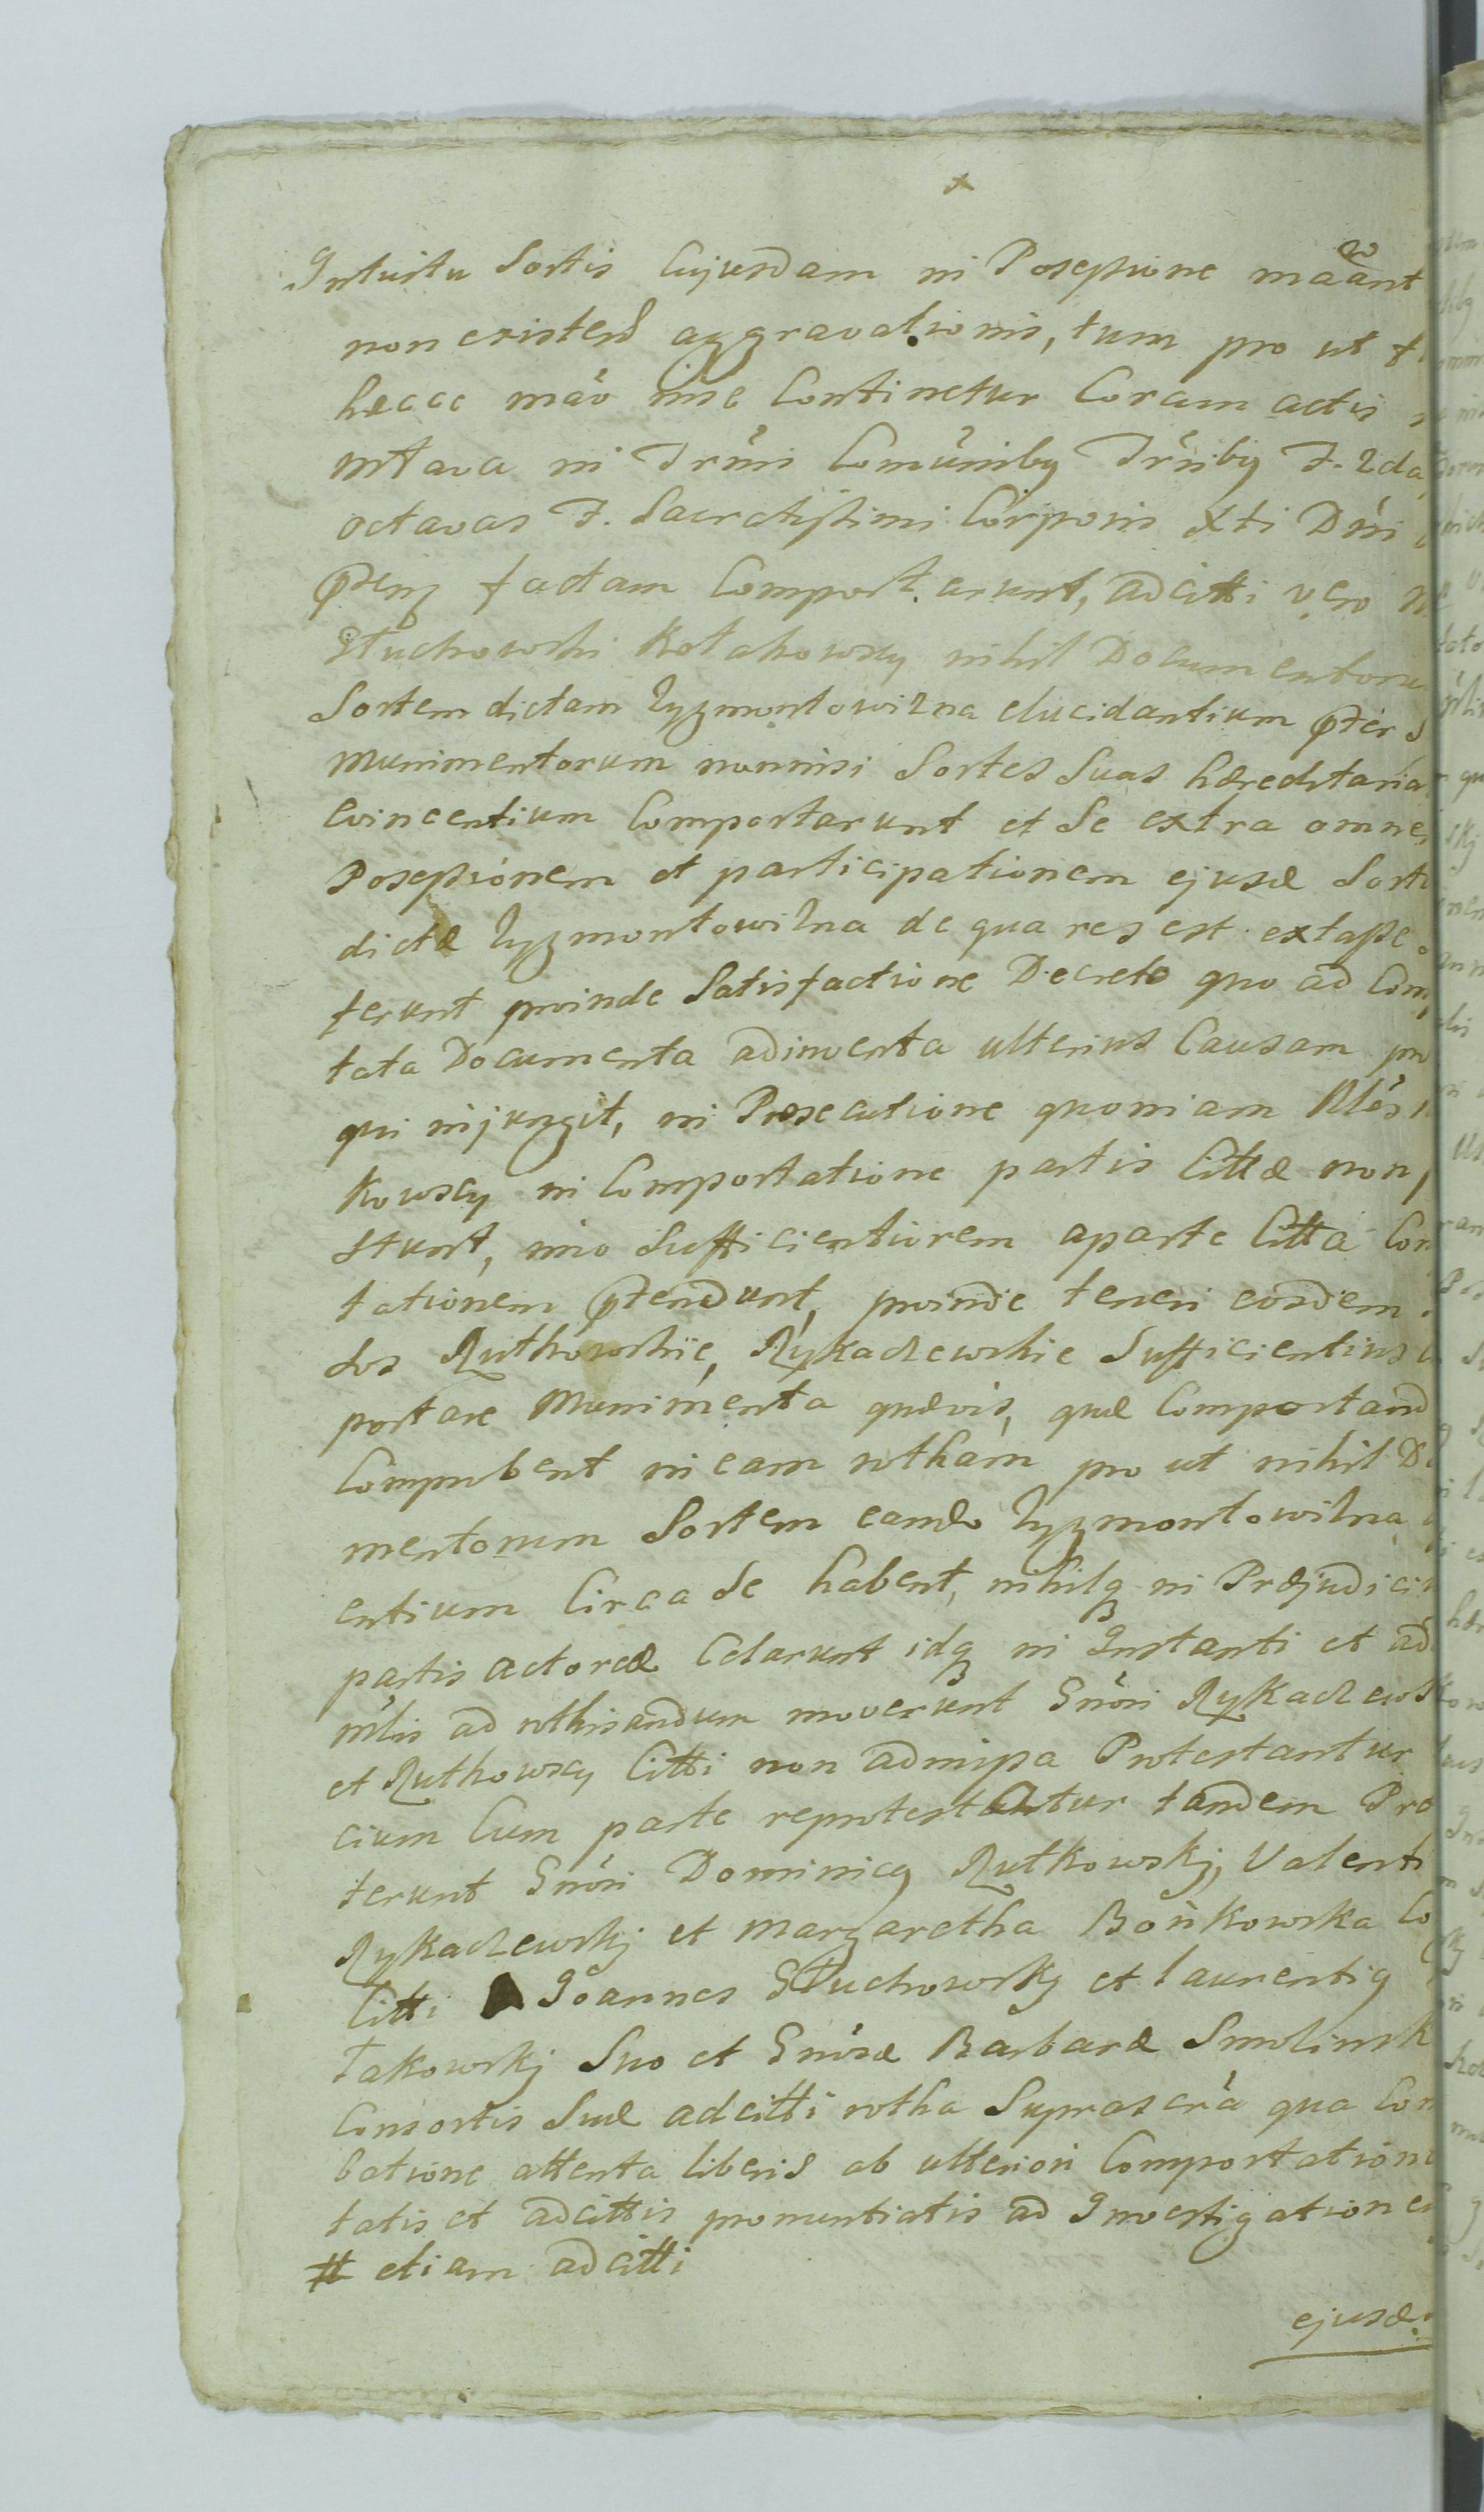 Intuitu Sortis Cujusdam in Possessione maãnt
non existend aggravationis, tum pro ut
hecce mãō nise Continetur Coram actis
mtava in Trm̃i Com̃unibg Trńibg F. 2da
octavas F. Sacratissimi Corporis Xti Dńi
factam Comport arunt, adcitti vero
Słuchowski Kołakowscy nihil Documentoru
Sortem dictam Zyzmontowizna elucidantium
Munimentorum nonnisi Sortes Suas hæreditaria
evincentium Comportarunt et Se extra omnem
Possessionem et participationem ejusd Sorti
dictæ Zyzmontowizna de qua res est extasse
ferunt proinde Satisfactione Decreto quo ad Com
tata Documenta adinventa ulterius Causam pro
qui injungit, in Prosecutione quoniam Nlẽs
Kowscy in Comportatione partis Cittæ non
stunt, imo Sufficientiorem a parte Citta Com
tationem ptendunt, proinde teneri eosdem
dos Rutkowskie, Rykaczewskie Sufficientius
portare Munimenta quævis, quæ Comportand
Comprobent in eam rotham pro ut nihil D
mentorum Sortem eamd Zyzmontowizna
entium Circa Se habent, nihilq in Præjudiciu
partis actoreæ Celarunt idq in Instanti et ad
ad rothisandum moverunt Gnõri Rykaczews
et Rutkowscy Citti non admissa Protestantur
cium Cum parte reprotestantur tandem Pro
terunt Gnõri Dominicg Rutkowskj, Valenti
Rykaczewskj et Margaretha Bońkowska Co
Citti Joannes Głuchowskj et Laurentig
Łakowskj Suo et Gnõsæ Barbaræ Smolinsk
Consortis Suæ adcitti rotha Suprascrã qua Com
batione attenta liberis ab ulteriori Comportatione
tatis et adcittis pronuntiatis ad Investigationem
# etiam adcitti
ejusd: